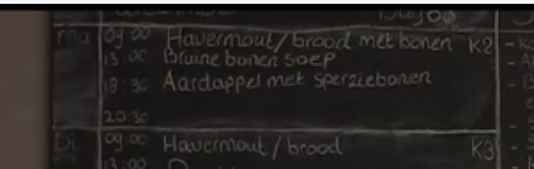 ma 09 00 Havermout/brood met bonen K2
13 00 Bruine bonen soep
18:30 Aardappel met sperziebonen
20 30
Di 09 00 Havermout/brood K3
13:00